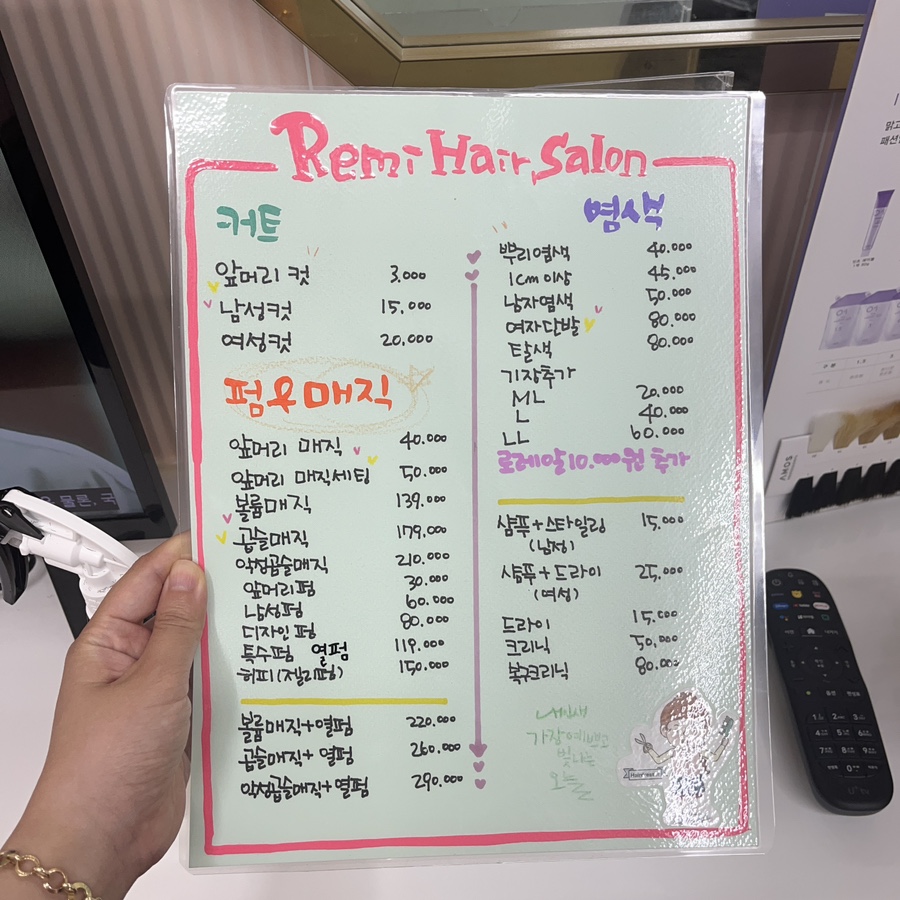 Remi Hair Salon
커트
앞머리 컷 3.000
남성컷 15.000
여성컷 20.000
펌&매직
앞머리 매직 40.000
앞머리 매직세팅 50.000
볼륨매직 139.000
곱슬매직 179.000
악성곱슬매직 210.000
앞머리펌 30.000
남성펌 60.000
디자인펌 80.000
특수펌 열펌 119.000
히피(젤리펌) 150.000
볼륨매직+열펌 220.000
곱슬매직+열펌 260.000
악성곱슬매직+열펌 290.000
염색
뿌리염색 40.000
1cm이상 45.000
남자염색 50.000
여자단발 80.000
탈색 80.000
기장추가
ML 20.000
L 40.000
LL 60.000
로레알10.000원 추가
샴푸+스타일링 15.000
(남성)
샴푸+드라이 25.000
(여성)
드라이 15.000
크리닉 50.000
복구크리닉 80.000
내인생
가장예쁘고
빛나는
오늘
물론, 국
맑고
패션
SOKA
1 2 3
4 5 6
7 8 9
0